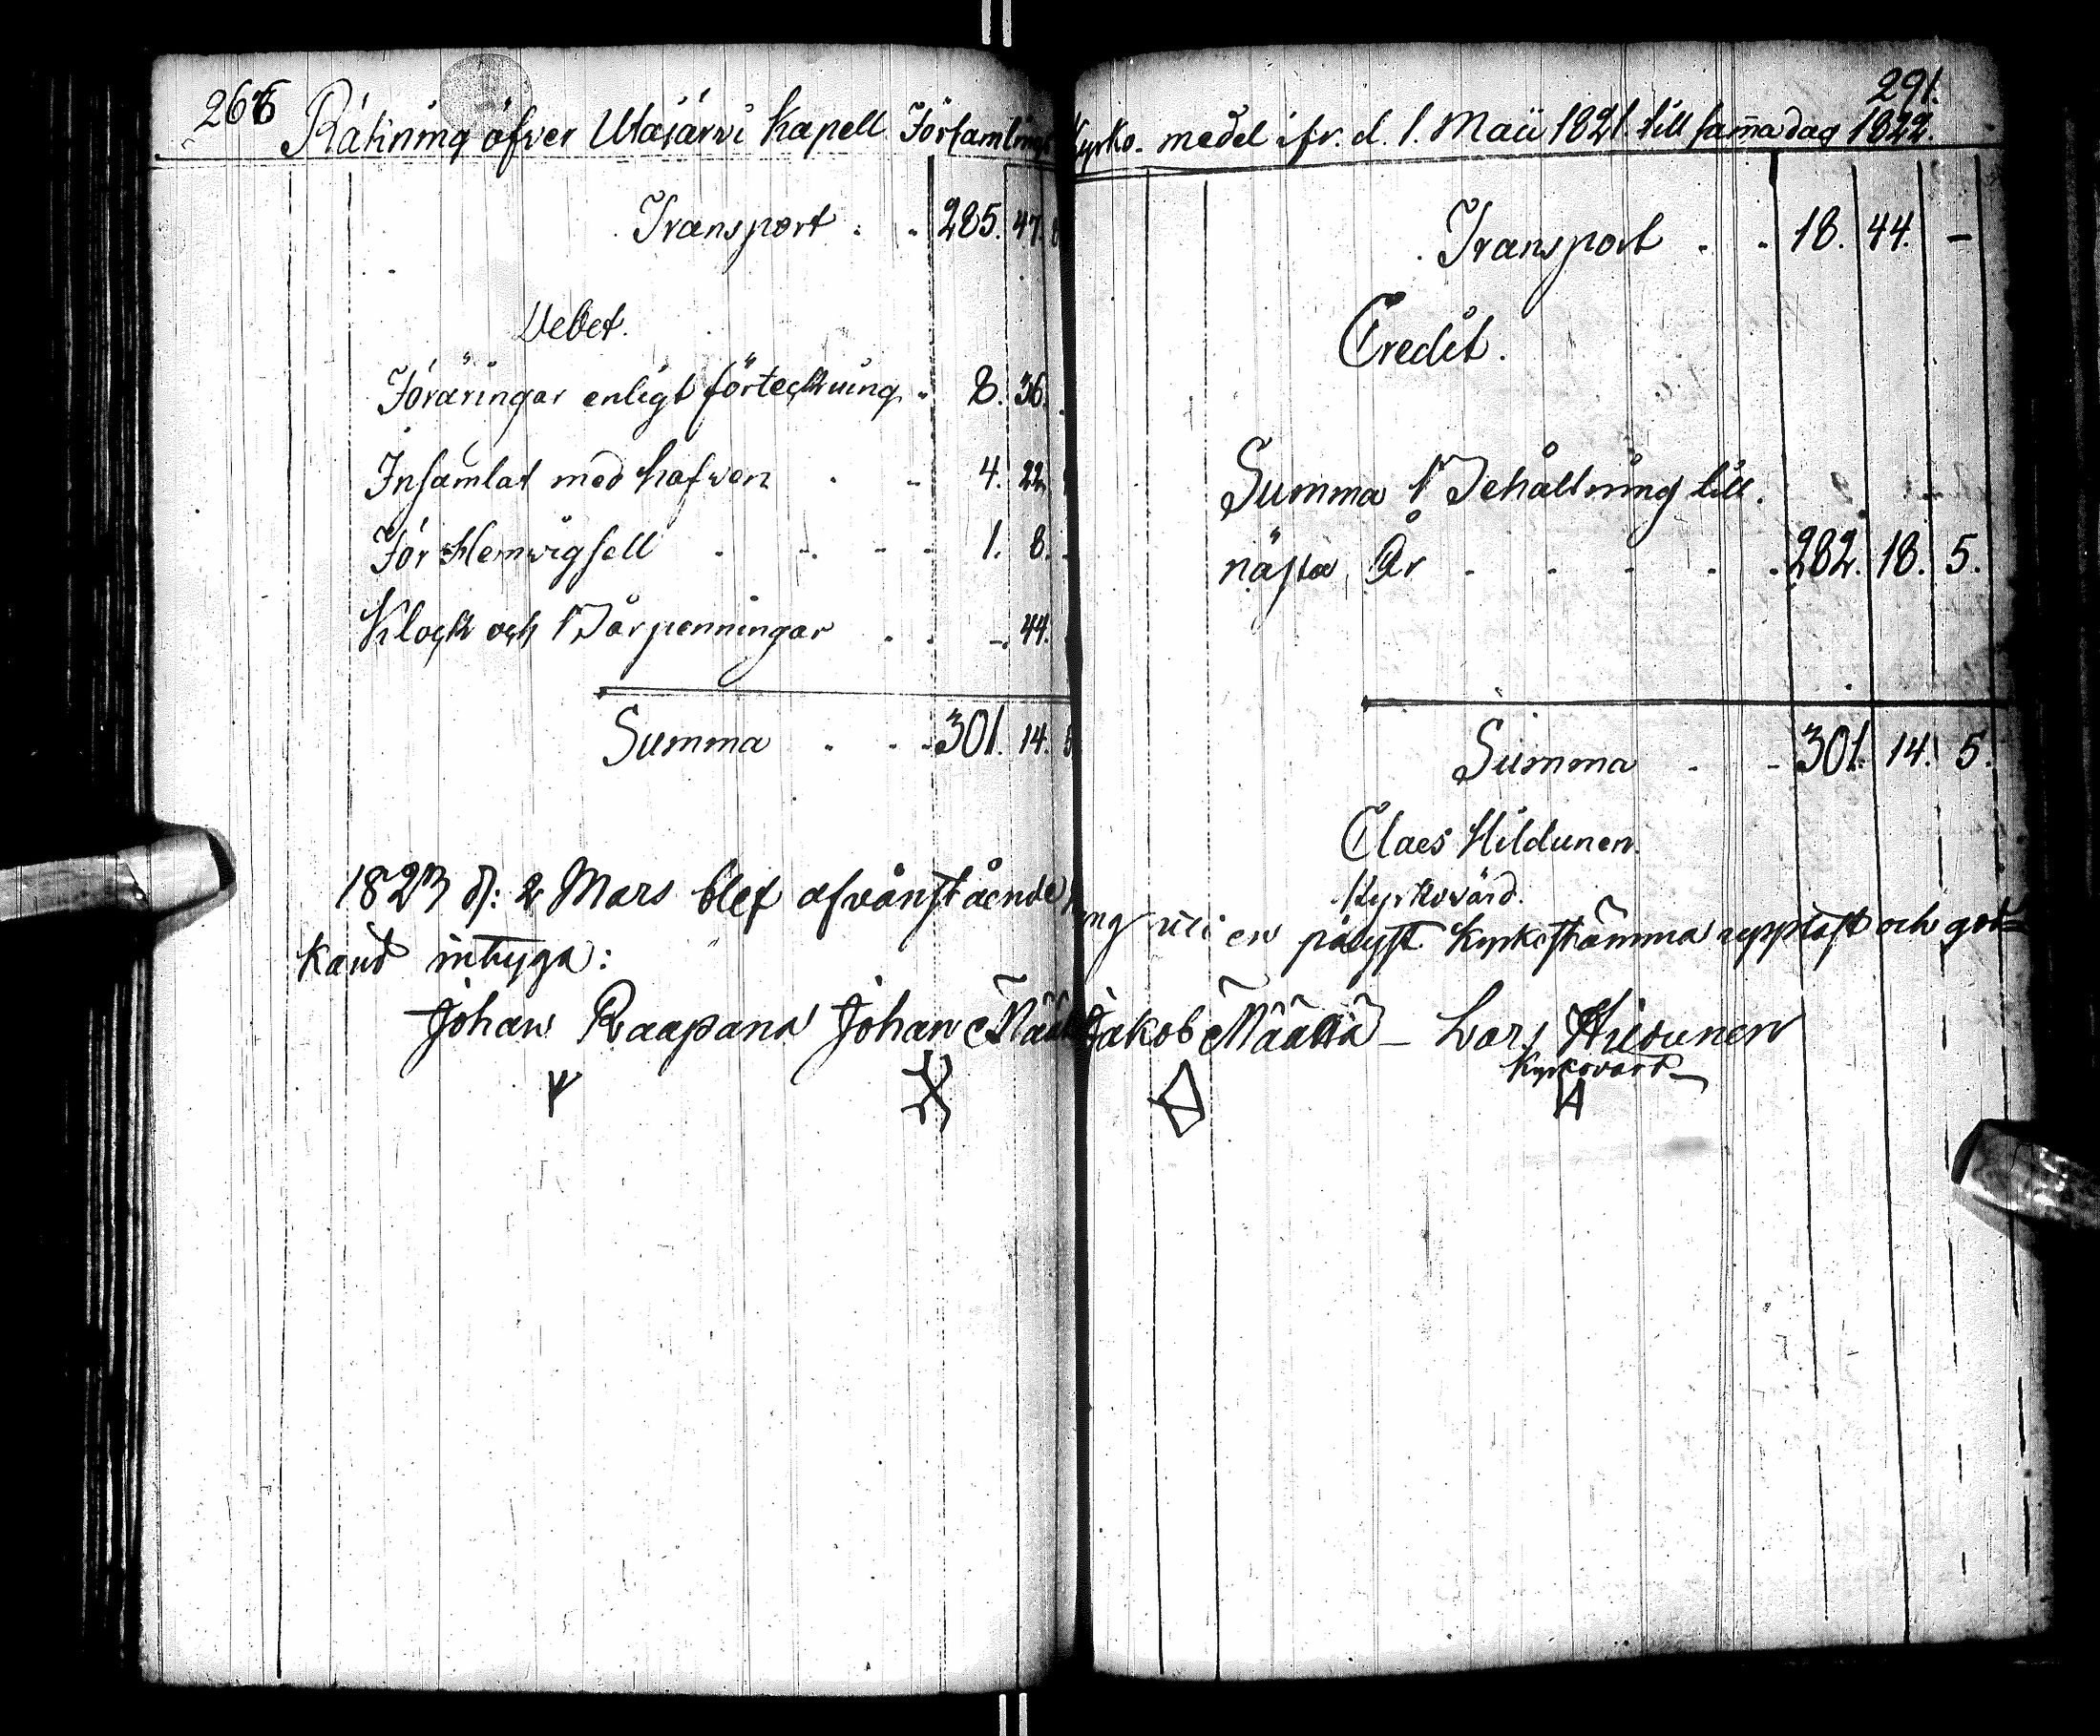 266
Räkning öfver Utajärvi Kapell Församlings
Transport . . 285. 47. 8
Debet.
Föräringar enligt förteckning . 8. 36.
Insamlat med hafwen . . 4. 22.
För Hemvigsell . . . . 1. 8.
Klock och Bårpenningar . . -. 44.
Summa . . . 301. 14. 5
1823 d: 2 Mars blef ofvanstående
känd intyga:
Johan Raapana Johan Määttä
291.
Kyrko- medel ifr. d. 1. Maii 1821. till samma dag 1822.
Transport . . 18. 44. –
Credit.
Summa Behållning till
nästa År . . . . . 282. 18. 5.
Summa . . 301. 14. 5.
Claes Hildunen.
Kyrkovärd.
ng uti en pålyst Kyrkostämma uppläst och god=
Jakob Määttä – Lars Hildunen
Kyrkovärd